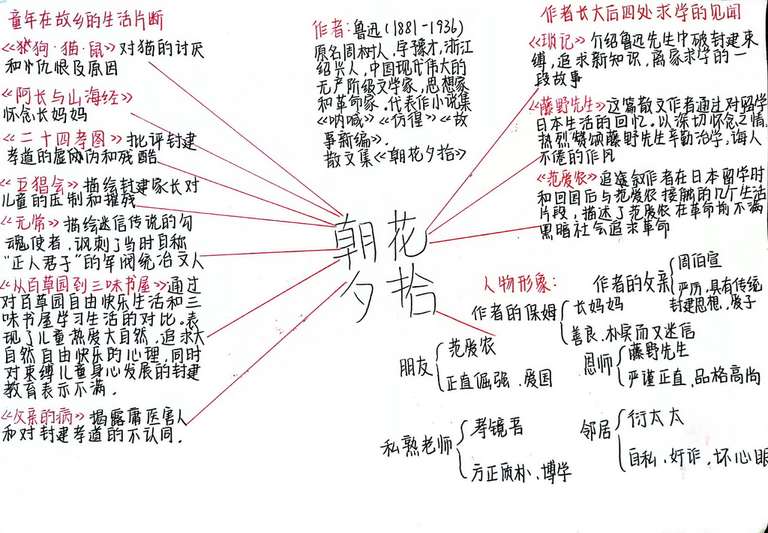 童年在故乡的生活片断
《狗·猫·鼠》对猫的讨厌
和仇恨及原因
《阿长与山海经》
怀念长妈妈
《二十四孝图》批评封建
孝道的虚伪和残酷
《五猖会》描绘封建家长对
儿童的压制和摧残
《无常》描绘迷信传说的勾
魂使者，讽刺了当时自称
“正人君子”的军阀统治文人
《从百草园到三味书屋》通过
对百草园自由快乐生活和三
味书屋学习生活的对比。表
现了儿童热爱大自然，追求大
自然自由快乐的心理，同时
对束缚儿童身心发展的封建
教育表示不满。
《父亲的病》揭露庸医害人
和对封建孝道的不认同。
作者：鲁迅（1881-1936）
原名周树人，字豫才，浙江
绍兴人，中国现代伟大的
无产阶级文学家，思想家
和革命家。代表作小说集
《呐喊》《彷徨》《故
事新编》.
散文集《朝花夕拾》
朝花
夕拾
作者长大后四处求学的见闻
《琐记》介绍鲁迅先生冲破封建束
缚，追求新知识，离家求学的一
段故事
《藤野先生》这篇散文作者通过对留学
日本生活的回忆。以深切怀念之情，
热烈赞颂藤野先生辛勤治学，诲人
不倦的作风
《范爱农》追叙作者在日本留学时
和回国后与范爱农接触的几个生活
片段，描述了范爱农在革命前不满
黑暗社会追求革命
人物形象：
作者的父亲
周伯宜
严厉，具有传统
封建思想，爱子
作者的保姆
长妈妈
善良、朴实而又迷信
朋友
范爱农
正直倔强、爱国
恩师
藤野先生
严谨正直，品格高尚
私熟老师
寿镜吾
方正质朴、博学
邻居
衍太太
自私、奸诈、坏心眼